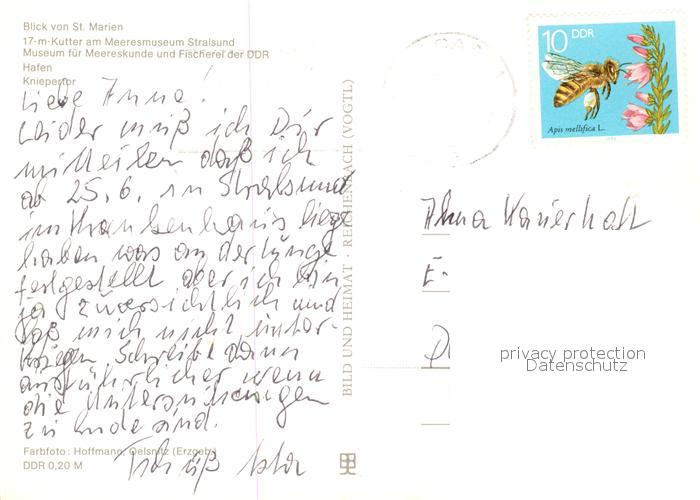 Blick von St. Marien
17-m-Kutter am Meeresmuseum Stralsund
Museum für Meereskunde und Fischerei der DDR
Hafen
Kniepertor
Liebe Anna!
Leider muß ich Dir
mitteilen daß ich
ab 25.6. in Stralsund
im Krankenhaus liege
haben was an der Lunge
festgestellt aber ich bin
ja zuversichtlich und
laß mich nicht unter-
kriegen Schreibe dann
ausführlicher wenn
die Untersuchungen
zu Ende sind.
Tschüß
Farbfoto: Hoffmann, Oelsnitz (Erzgeb.)
DDR 0,20 M
BILD UND HEIMAT · REICHENBACH (VOGTL)
10 DDR
Apis mellifica L.
Anna
E.
D
privacy protection
Datenschutz